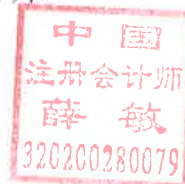 中国
注册会计师
薛敏
320200280079